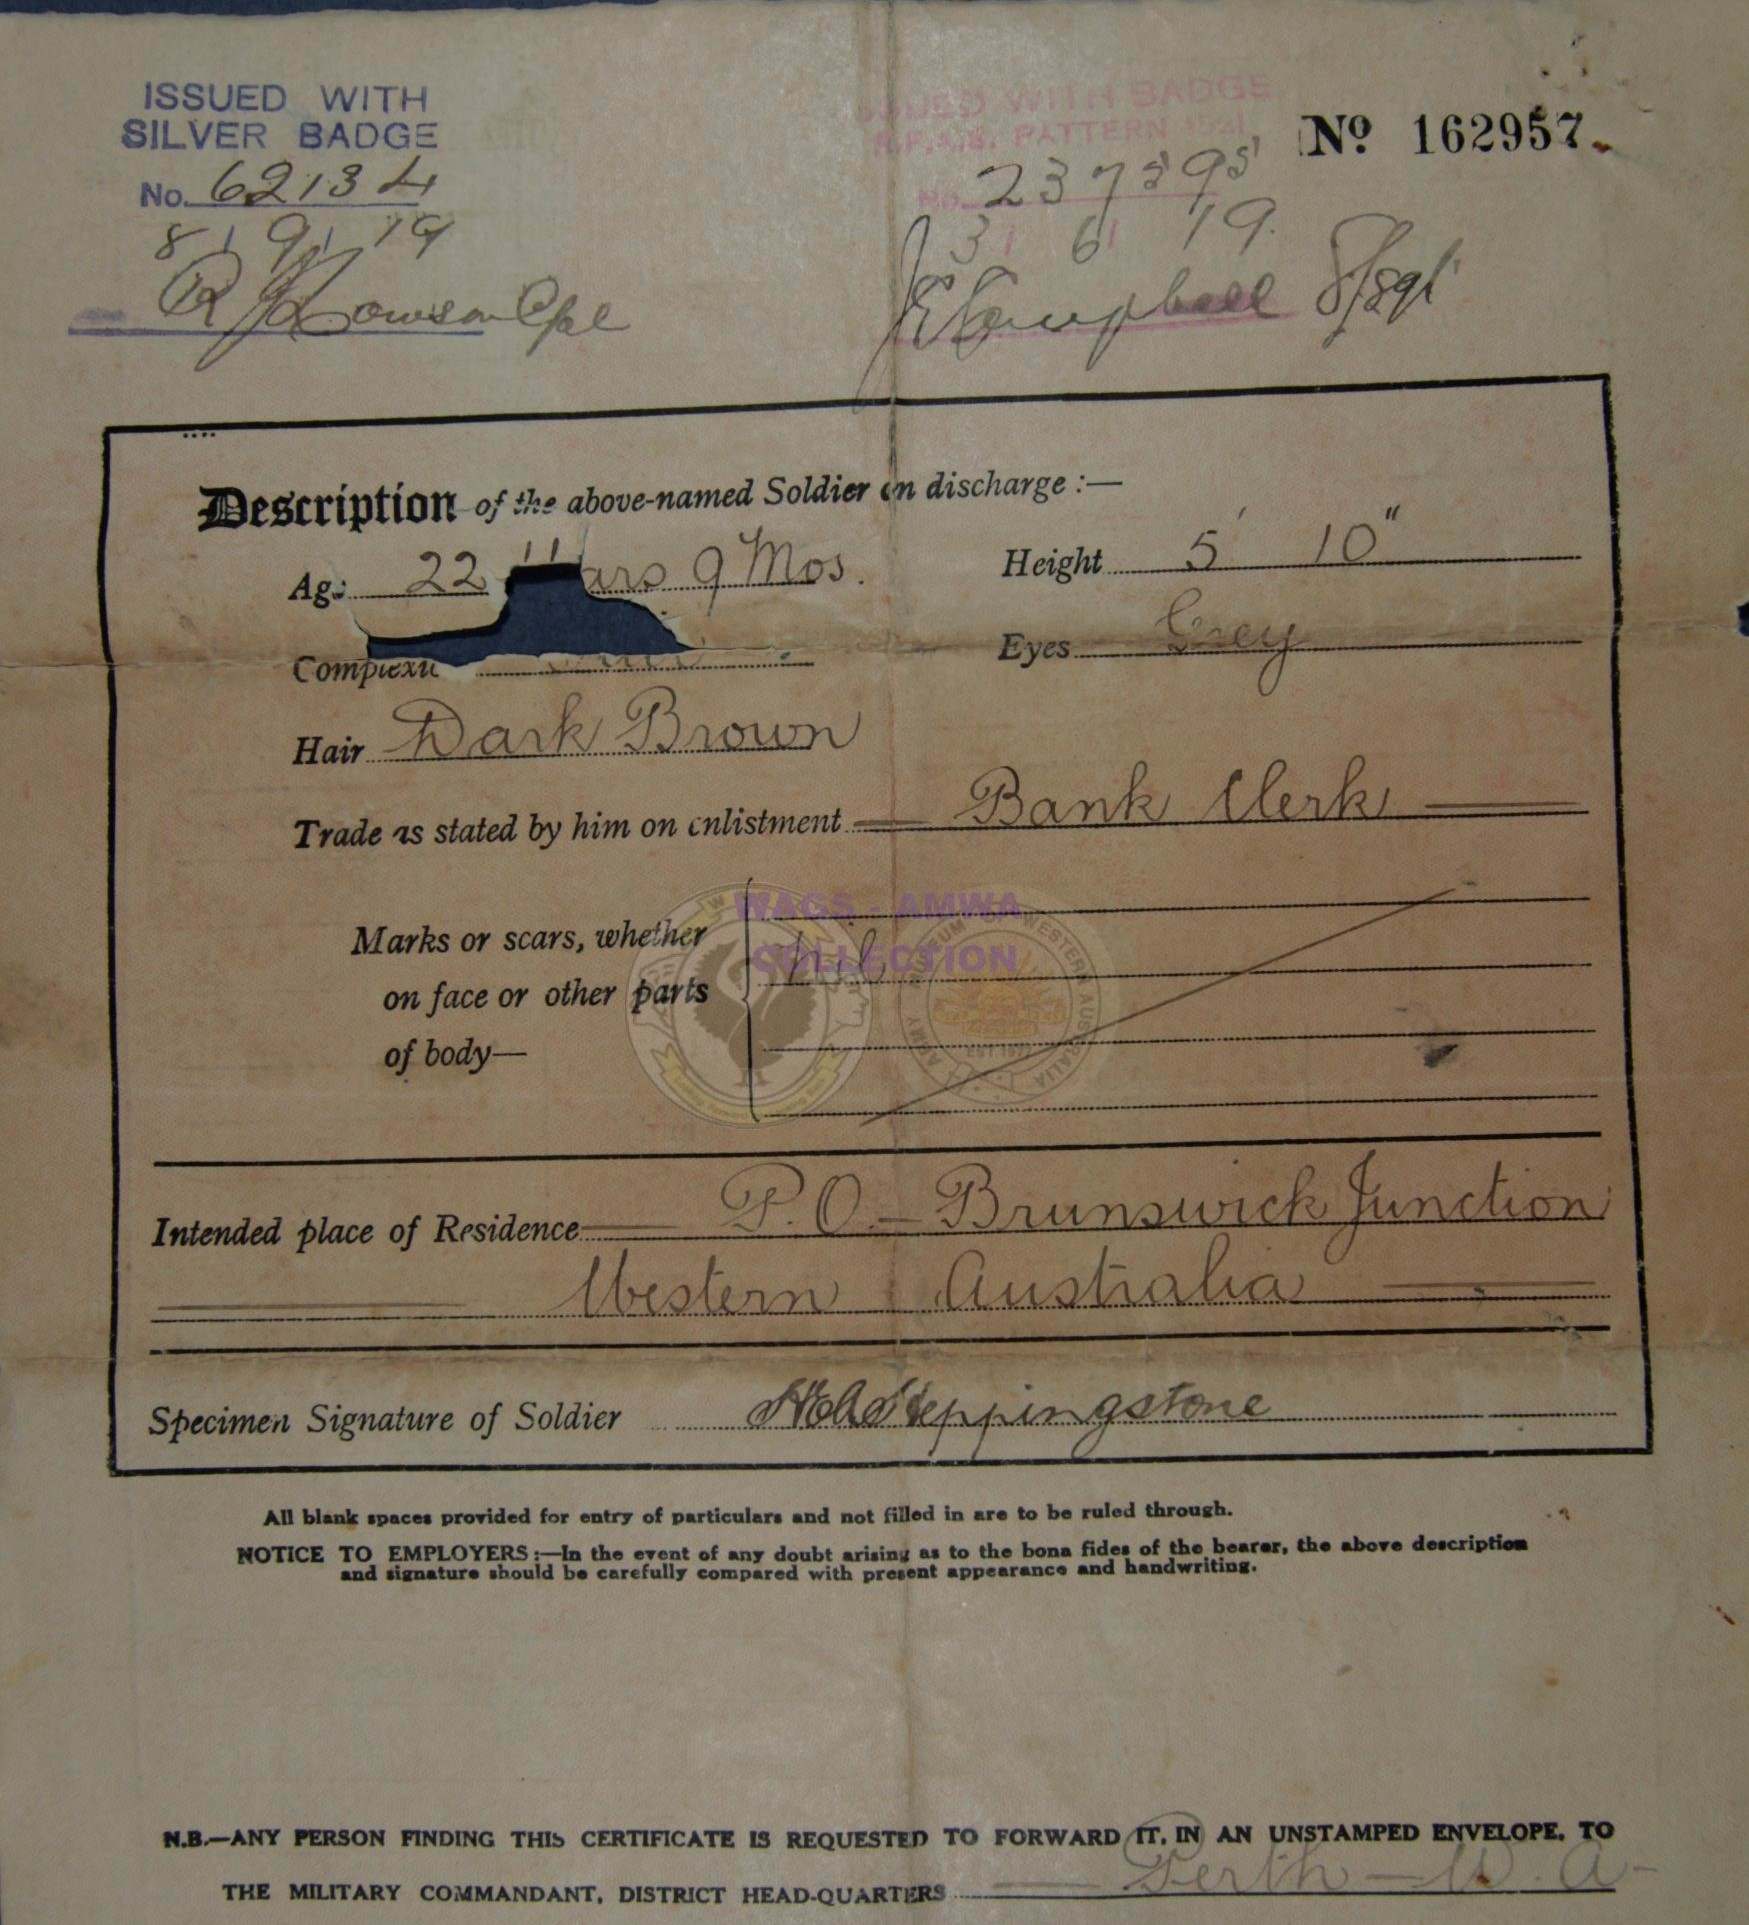 ISSUED WITH
SILVER BADGE
No. 62134
8 / 9 / 19
ISSUED WITH BADGE
PATTERN
No. 237595
3 / 6 / 19.
Campbell S/Sgt
No. 162957.
Description of the above-named Soldier on discharge :—
Age 22 11 ars 9 Mos.
Height 5' 10"
Complexi
Eyes Grey
Hair Dark Brown
Trade as stated by him on enlistment Bank Clerk
Marks or scars, whether
on face or other parts
of body—
Nil
WAGS - AMWA
COLLECTION
Intended place of Residence P.O. - Brunswick Junction
Western Australia
Specimen Signature of Soldier Steppingstone
All blank spaces provided for entry of particulars and not filled in are to be ruled through.
NOTICE TO EMPLOYERS :—In the event of any doubt arising as to the bona fides of the bearer, the above description
and signature should be carefully compared with present appearance and handwriting.
N.B.—ANY PERSON FINDING THIS CERTIFICATE IS REQUESTED TO FORWARD IT, IN AN UNSTAMPED ENVELOPE, TO
THE MILITARY COMMANDANT, DISTRICT HEAD-QUARTERS Perth — W.A.